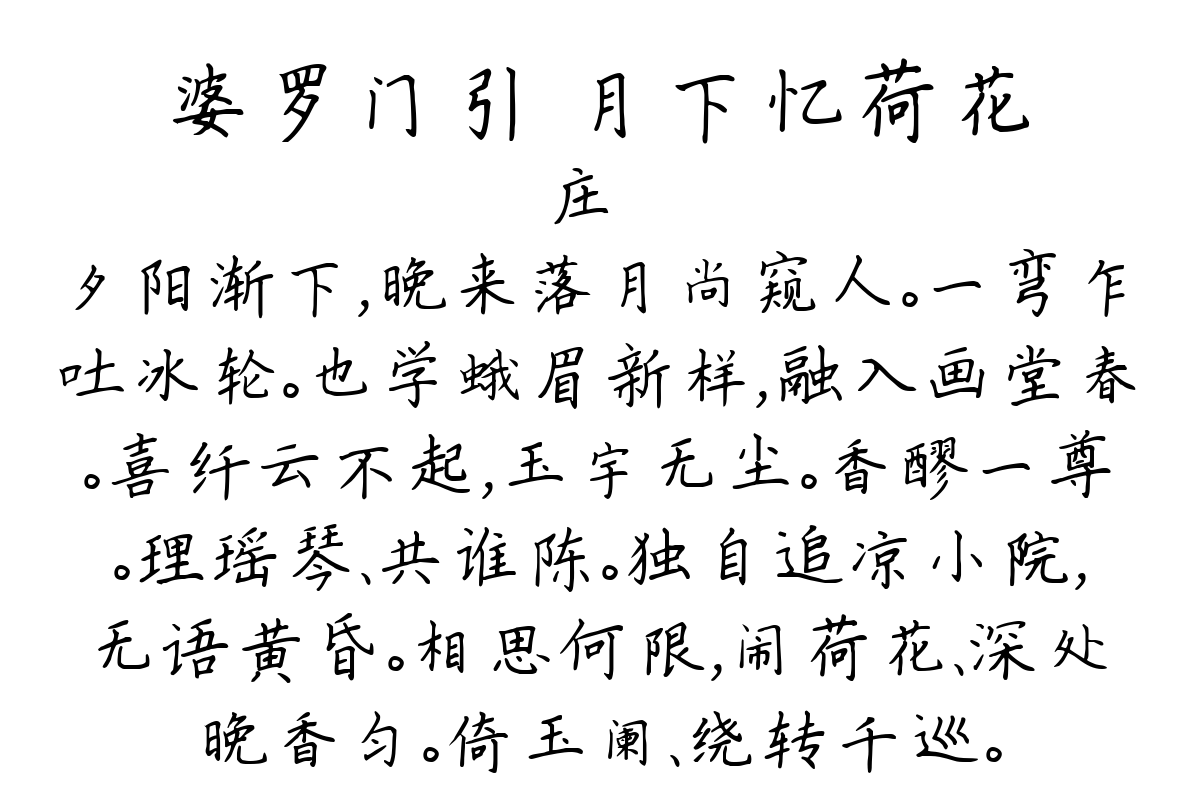 婆罗门引 月下忆荷花
庄
夕阳渐下,晚来落月尚窥人。一弯乍
吐冰轮。也学蛾眉新样,融入画堂春
。喜纤云不起,玉宇无尘。香醪一尊
。理瑶琴、共谁陈。独自追凉小院,
无语黄昏。相思何限,闹荷花、深处
晚香匀。倚玉阑、绕转千巡。